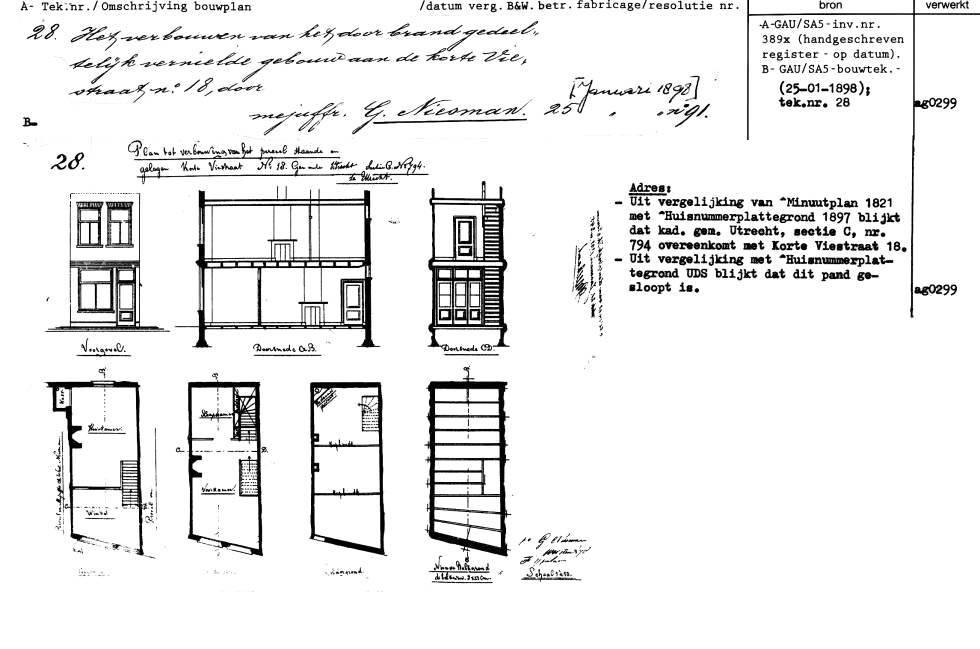 A- Tek.nr./Omschrijving bouwplan /datum verg. B&W. betr. fabricage/resolutie nr.
bron
verwerkt
28. Het verbouwen van het door brand gedeel-
telijk vernielde gebouw aan de korte Vie,
straat, n:o 18, door
mejuffr. G. Niesman. 25 [Januari 1898] n:o 91.
A-GAU/SA5-inv.nr.
389x (handgeschreven
register - op datum).
B- GAU/SA5-bouwtek.-
(25-01-1898);
tek.nr. 28
ag0299
B-
28.
Plan tot verbouwing van het perceel staande en
gelegen Korte Viestraat No. 18. Gemeente Utrecht Sectie C. No 794.
te Utrecht.
Adres:
- Uit vergelijking van ^Minuutplan 1821
met ^Huisnummerplattegrond 1897 blijkt
dat kad. gem. Utrecht, sectie C, nr.
794 overeenkomt met Korte Viestraat 18.
- Uit vergelijking met ^Huisnummerplat-
tegrond UDS blijkt dat dit pand ge-
sloopt is.
ag0299
Voorgevel.
Doorsnede A.B.
Doorsnede C.D.
Huiskamer
Winkel
Slaapkamer
Voorkamer
Schaal